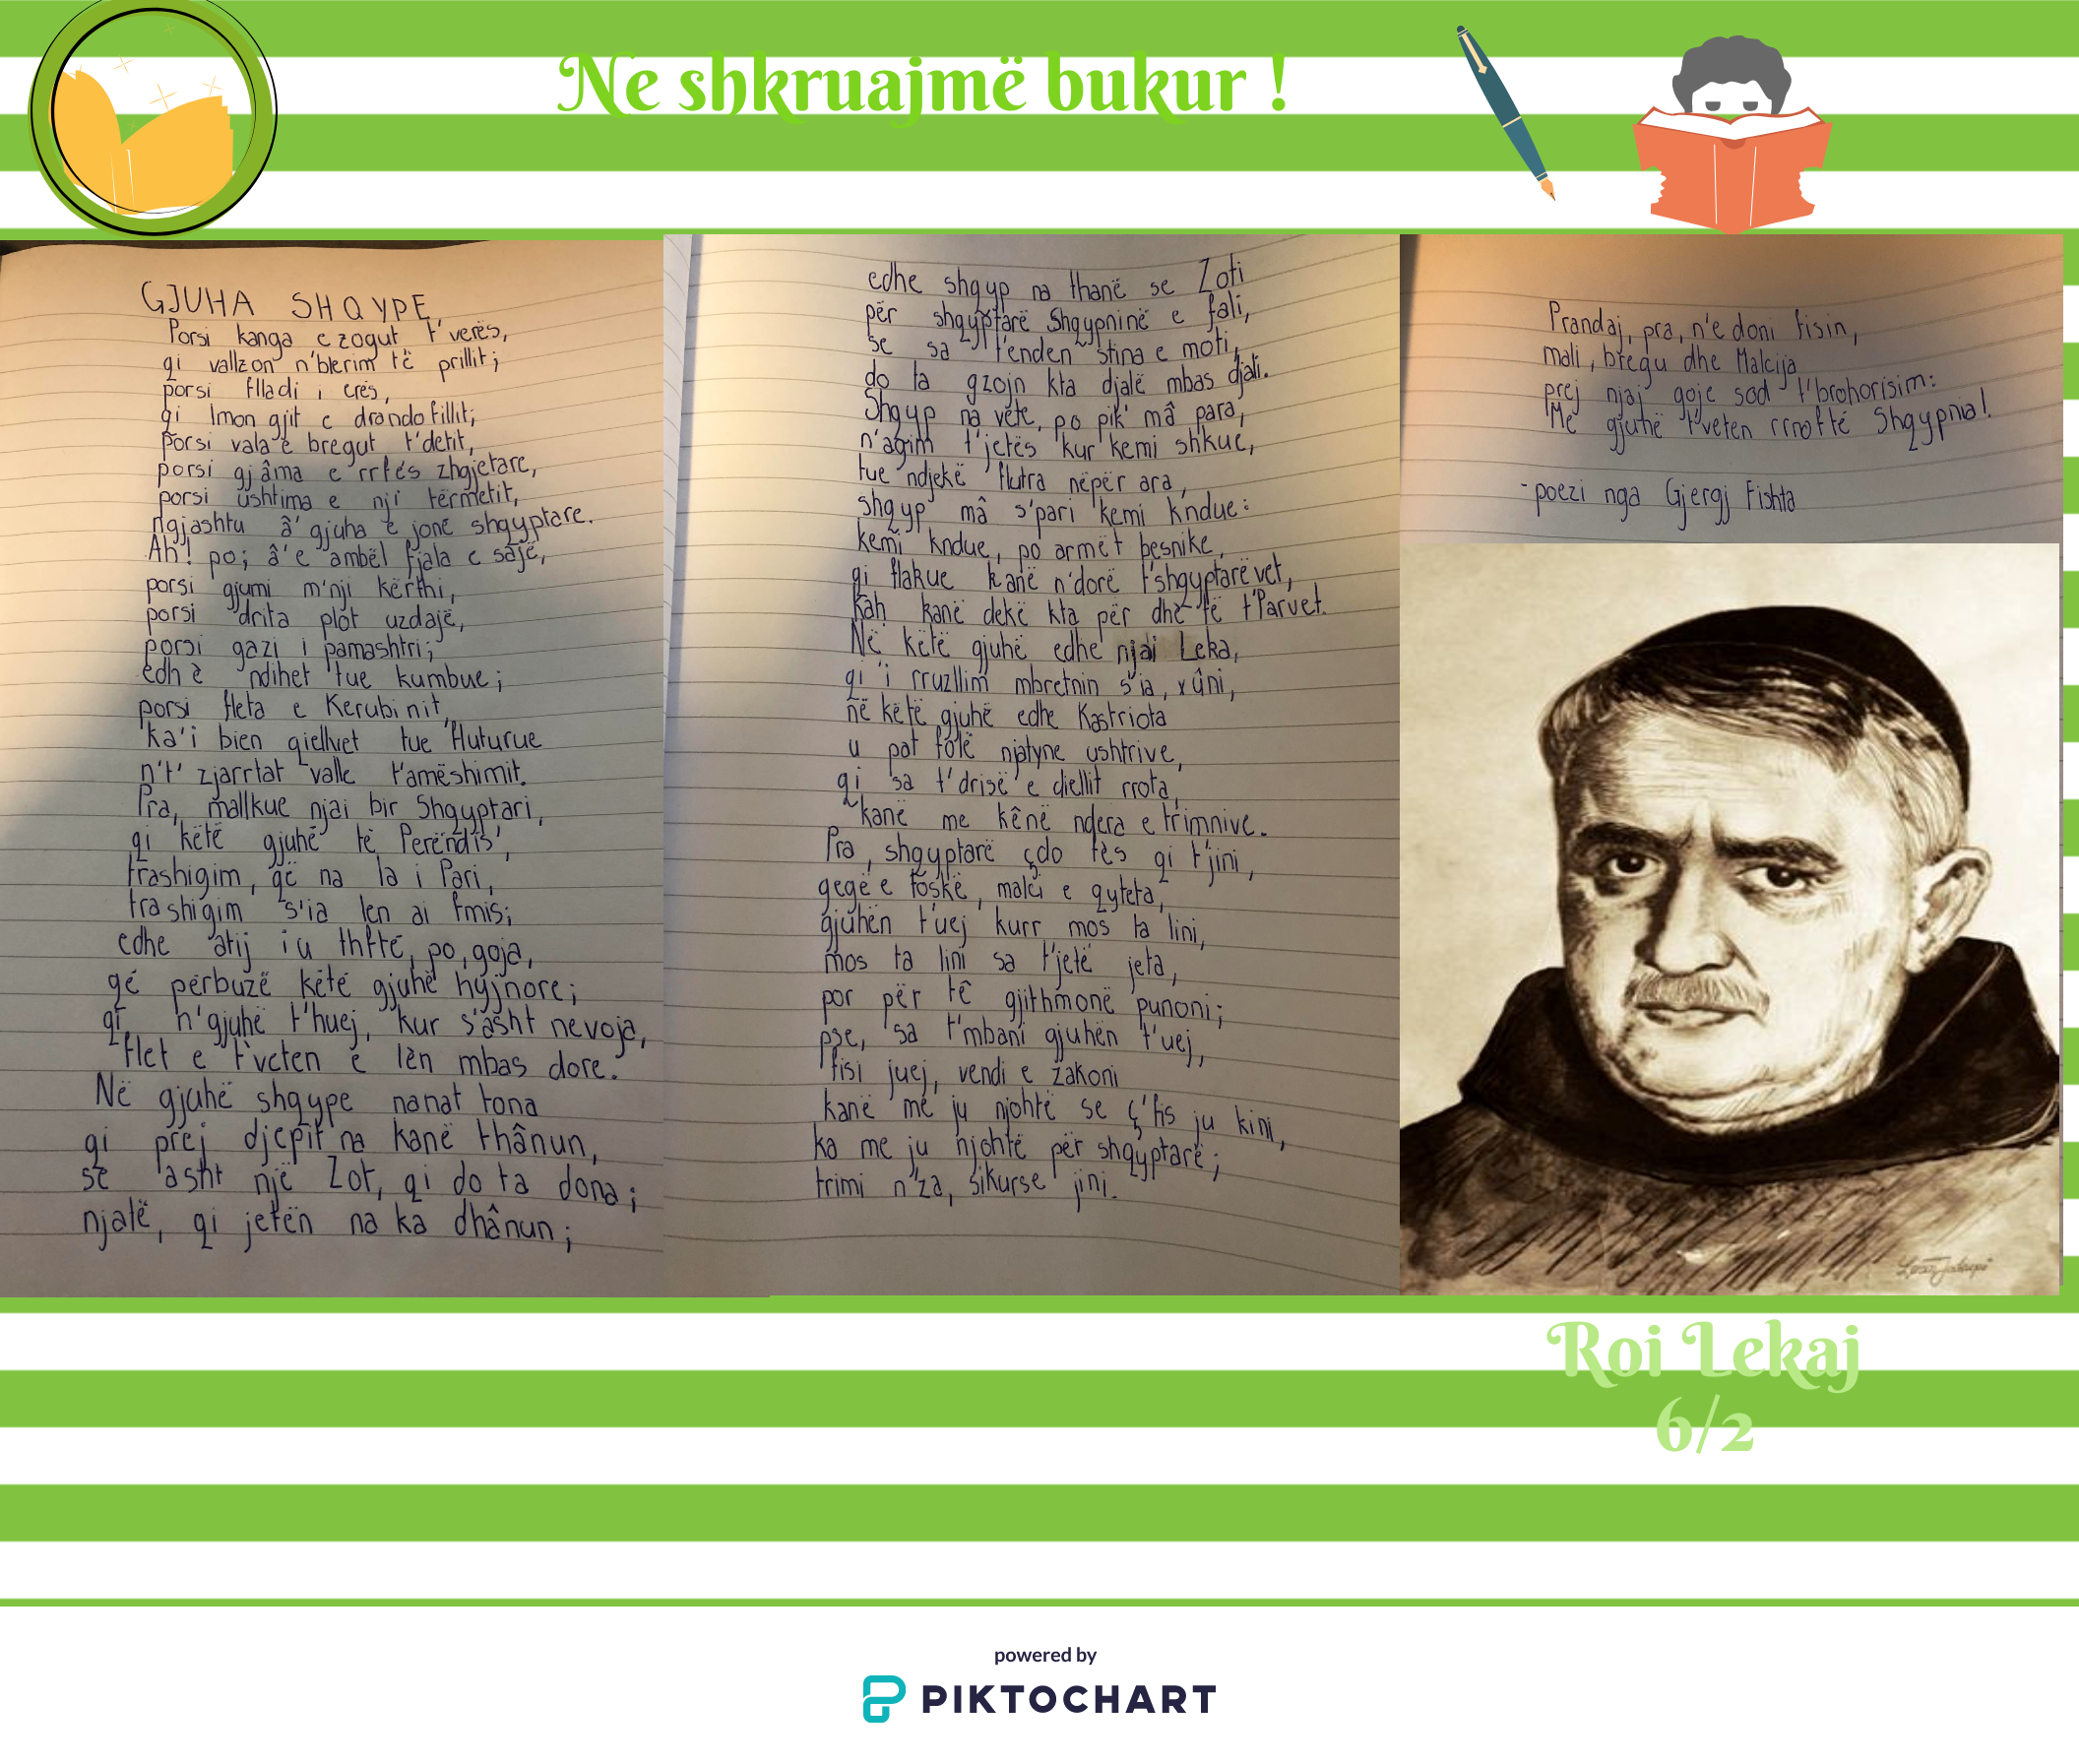 Ne shkruajmë bukur !
GJUHA SHQYPE
Porsi kanga e zogut t'verës,
qi vallzon n'blerim të prillit;
porsi flladi i erës,
qi lmon gjit e drandofillit;
porsi vala e bregut t'detit,
porsi gjâma e rrfés zhgjetare,
porsi ushtima e nji' tërmetit,
ngjashtu â' gjuha e jonë shqyptare.
Ah! po; â'e ambël fjala e sajë,
porsi gjumi m'nji kërthi,
porsi drita plot uzdajë,
porsi gazi i pamashtri;
edhè ndihet tue kumbue;
porsi fleta e Kerubinit,
ka'i bien qiellvet tue fluturue
n't' zjarrtat valle t'amëshimit.
Pra, mallkue njai bir Shqyptari,
qi këtë gjuhë të Perëndis',
trashigim, që na la i Pari,
trashigim s'ia len ai fmis;
edhe atij iu thftë, po, goja,
që përbuzë këtë gjuhë hyjnore;
qi n'gjuhë t'huej, kur s'asht nevoja,
flet e t'veten e lèn mbas dore.
Në gjuhë shqype nanat tona
qi prej djepit na kanë thânun,
se asht një Zot, qi do ta dona;
njatë, qi jetën na ka dhânun;
edhe shqyp na thanë se Zoti
për shqyptarë Shqypninë e fali,
se sa t'enden stina e moti,
do ta gzojn kta djalë mbas djali.
Shqyp na vete, po pik' mâ para,
n'agim t'jetës kur kemi shkue,
tue ndjekë flutra nëpër ara,
shqyp mâ s'pari kemi kndue:
kemi kndue, po armët besnike,
qi flakue kanë n'dorë t'shqyptarëvet,
kah kanë dekë kta për dhe të t'Parvet.
Në këtë gjuhë edhe njai Leka,
qi i rruzllim mbretnin s'ia, xûni,
në këtë gjuhë edhe Kastriota
u pat folë njatyne ushtrive,
qi sa t'drisë e diellit rrota,
kanë me kênë ndera e trimnive.
Pra, shqyptarë çdo fès qi t'jini,
gegë e toskë, malci e qyteta,
gjuhën t'uej kurr mos ta lini,
mos ta lini sa t'jetë jeta,
por për tê gjithmonë punoni;
pse, sa t'mbani gjuhën t'uej,
fisi juej, vendi e zakoni
kanë me ju njohtë se ç'fis ju kini,
ka me ju njohtë për shqyptarë;
trimi n'za, sikurse jini.
Prandaj, pra, n'e doni fisin,
mali, bregu dhe Malcija
prej njaj goje sod t'brohorisim:
Me gjuhë t'veten rrnoftë Shqypnia!
-poezi nga Gjergj Fishta
Roi Lekaj
6/2
powered by
PIKTOCHART